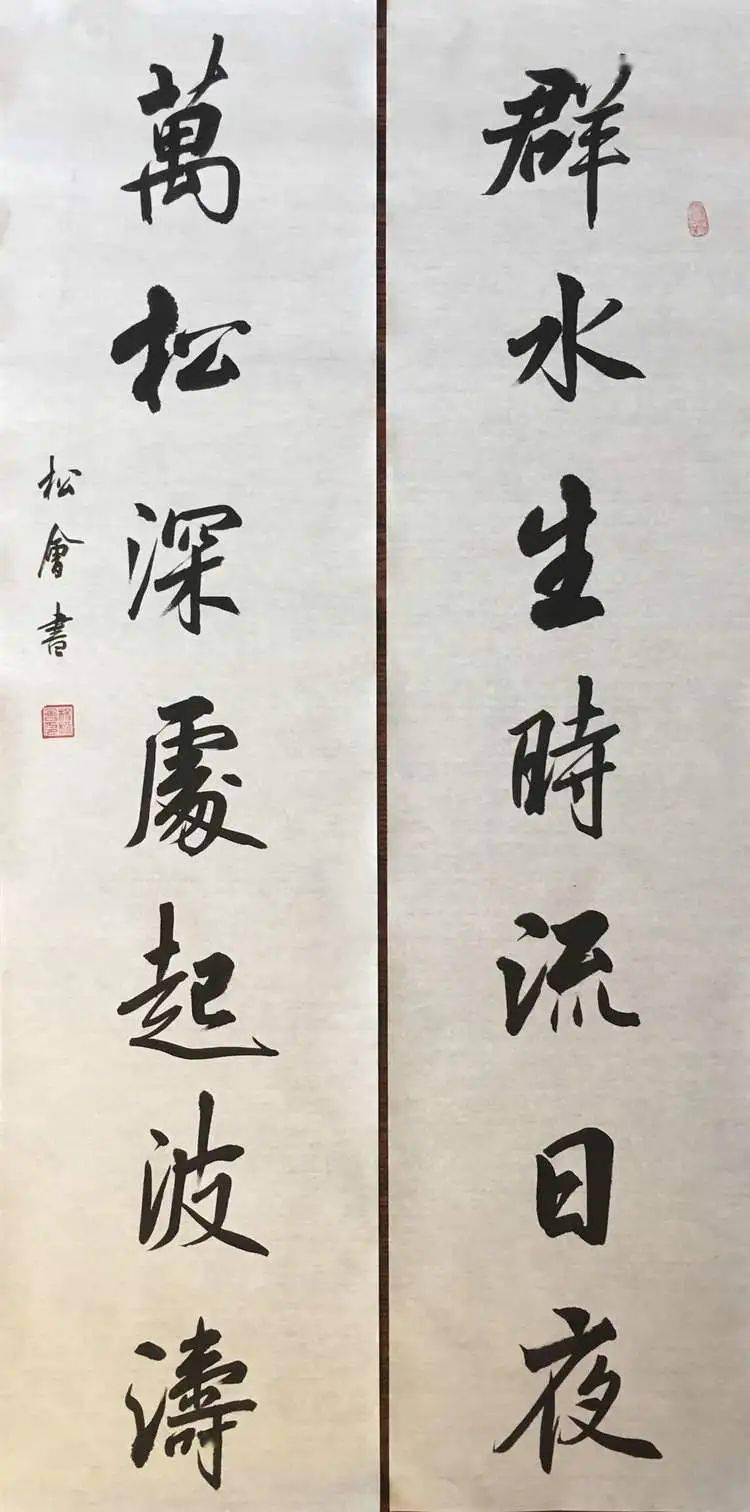 群水生時流日夜
萬松深處起波濤
松會書